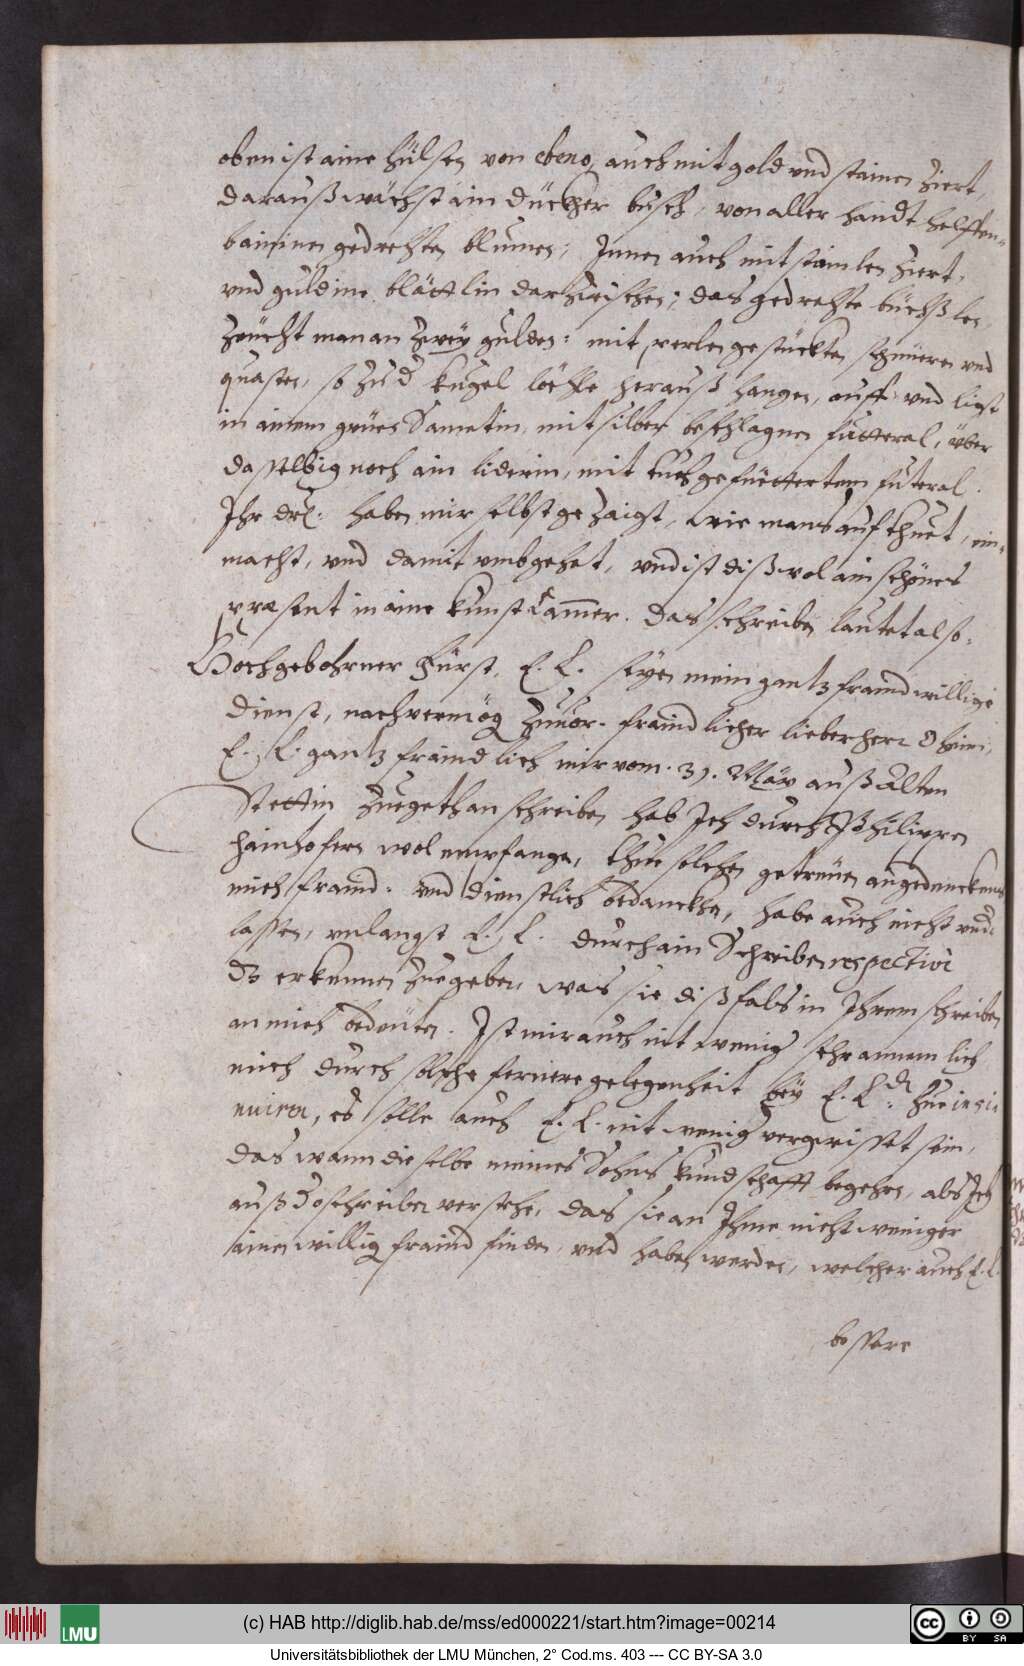 oben ist aine hülsen von ebeno, auch mit gold vnd stainen ziert,
darauß wächst ain dückher busch, von aller handt helffen-
baininen gedrehten blumen, Innen auch mit stainlen ziert,
vnd guldine blättlin darzwischen; das gedrehte büchßlen
zeücht man an zwey gulden: mit perlen gestückten schnüeren vnd
quasten, so zu d kugel löchle herauß hangen, auff vnd ligt
in ainem grüen Sametin, mit silber beschlagnen fuetteral, über
dasselbig noch ain liderin, mit tuch gefüettertem futeral.
Ihr drl: haben mir selbst gezaigt, wie mans auf thuet, ein-
macht, vnd damit vmbgehet, vnd ist diß wol ain schönes
præsent in aine kunst Camer. Das schreiben lautet also:
Hochgebohrner Fürst, E. L. seyen mein gantz fraindwillige
dienst, nach vermög zuuor. fraindlicher lieber herr Oheim,
E. L. gantz fraindlich mir vom 31. May auß Alten
Stettin zuegethan schreiben hab Ich durch Philippen
hainhofern wol empfangen, thue solchen getreüen angedenckens
mich fraind- vnd dienstlich bedanckhen, habe auch nicht vnder-
lassen, vnlangst E. L. durch ain Schreiben respectivè
zu erkennen zuegeben, was sie dißfals in Ihrem schreiben
an mich bedeüten. Ist mir auch nit wenig sehr annemlich
mich durch solche fernere gelegenheit bey E. L.dn zue insi-
nuiren, es solle auch E. L. nit wenig vergwisset sein,
das wann dieselbe meines Sohns kundschafft begehren, als Ich
auß dero schreiben verstehe, das sie an Ihme nicht weniger
ainen willig fraind finden, vnd haben werden, welcher auch E. L.
bessere
(c) HAB http://diglib.hab.de/mss/ed000221/start.htm?image=00214
LMU
cc BY SA
Universitätsbibliothek der LMU München, 2° Cod.ms. 403 --- CC BY-SA 3.0